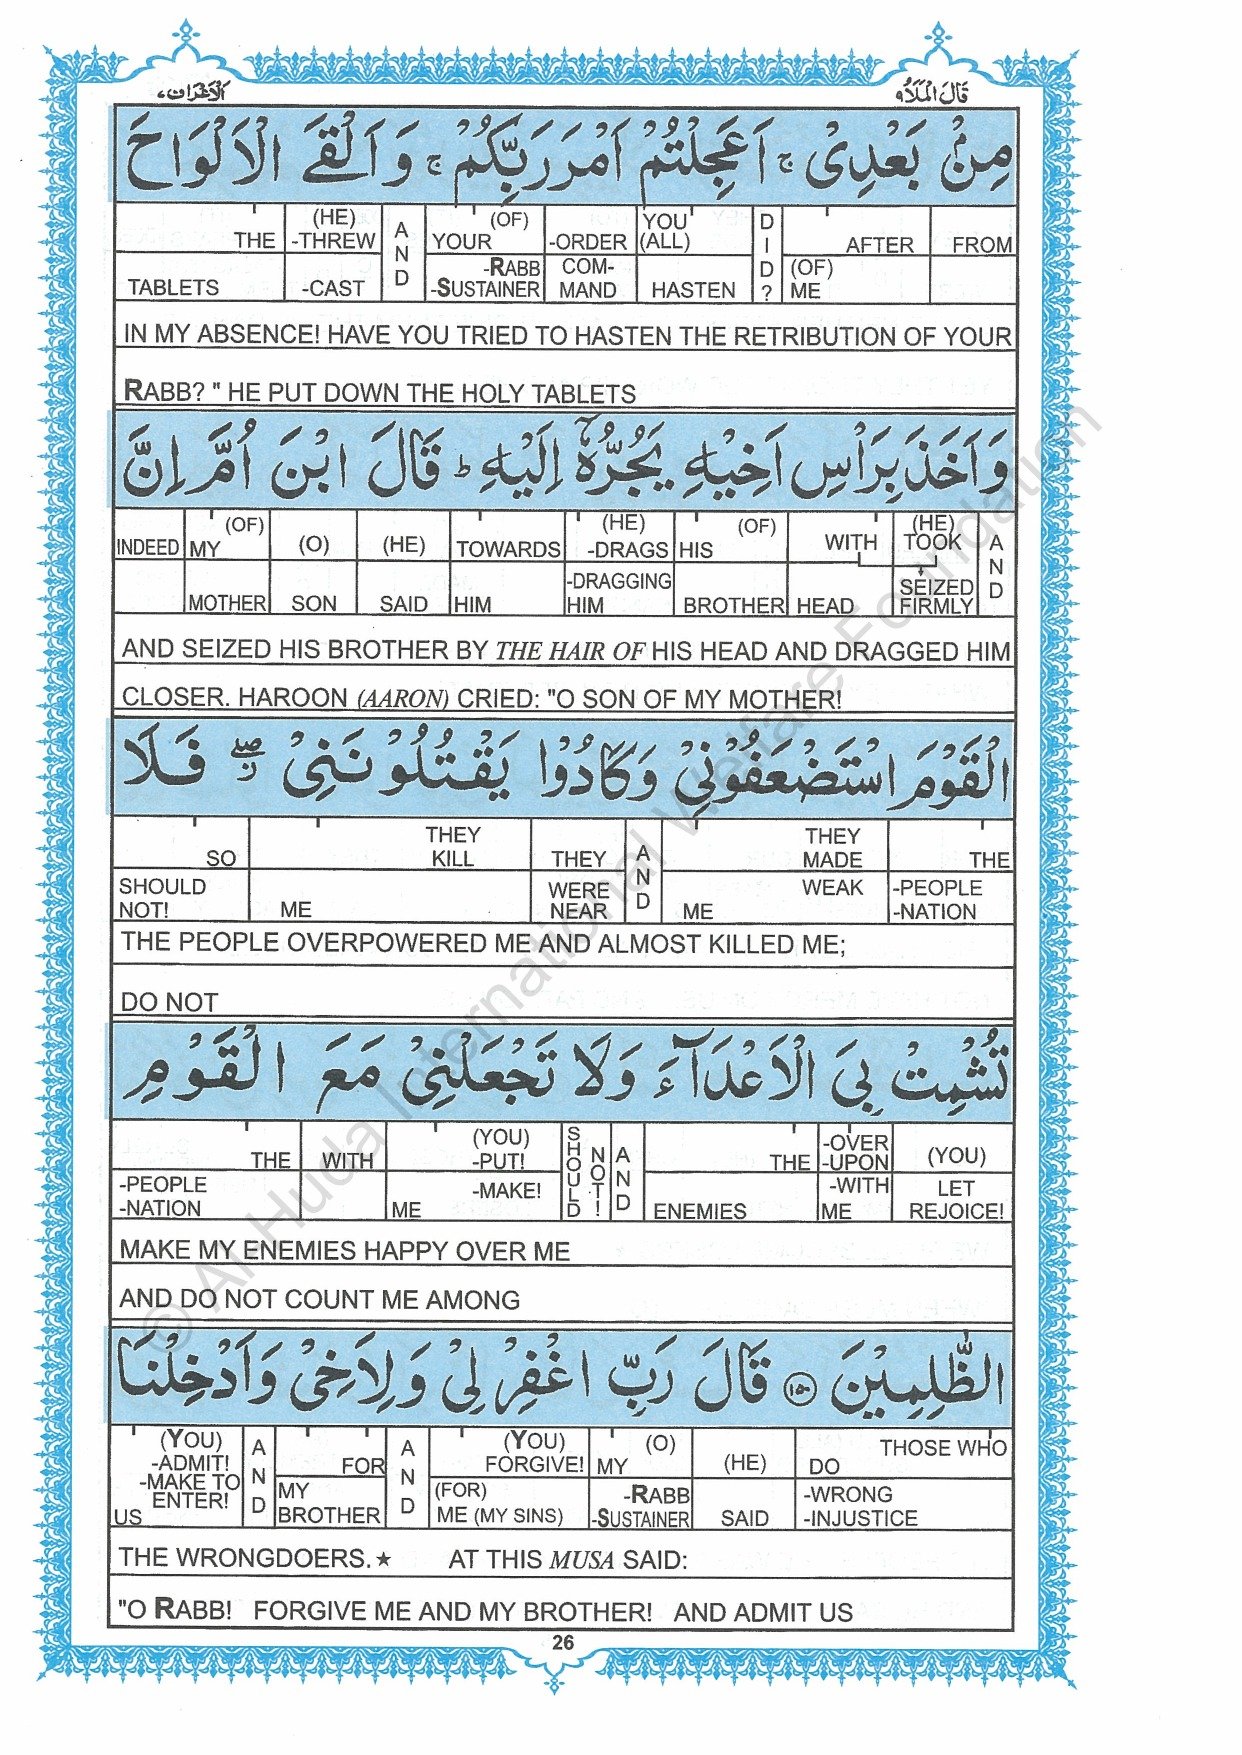 الاعراف ٧ قال الملا ٩
مِنْۢ بَعْدِىْ ۚ اَعَجِلْتُمْ اَمْرَ رَبِّكُمْ ۚ وَاَلْقَى الْاَلْوَاحَ
THE (HE) -THREW AND YOUR (OF) -ORDER YOU (ALL) DID? AFTER FROM
TABLETS -CAST -RABB -SUSTAINER COM-MAND HASTEN (OF) ME
IN MY ABSENCE! HAVE YOU TRIED TO HASTEN THE RETRIBUTION OF YOUR
RABB? " HE PUT DOWN THE HOLY TABLETS
وَاَخَذَ بِرَاْسِ اَخِيْهِ يَجُرُّهٗٓ اِلَيْهِ ؕ قَالَ ابْنَ اُمَّ اِنَّ
INDEED MY (OF) (O) (HE) TOWARDS (HE) -DRAGS HIS (OF) WITH (HE) TOOK AND
MOTHER SON SAID HIM -DRAGGING HIM BROTHER HEAD SEIZED FIRMLY
AND SEIZED HIS BROTHER BY THE HAIR OF HIS HEAD AND DRAGGED HIM
CLOSER. HAROON (AARON) CRIED: "O SON OF MY MOTHER!
الْقَوْمَ اسْتَضْعَفُوْنِىْ وَكَادُوْا يَقْتُلُوْنَنِىْ ۖ فَلَا
SO THEY KILL THEY AND THEY MADE THE
SHOULD NOT! ME WERE NEAR ME WEAK -PEOPLE -NATION
THE PEOPLE OVERPOWERED ME AND ALMOST KILLED ME;
DO NOT
تُشْمِتْ بِىَ الْاَعْدَآءَ وَلَا تَجْعَلْنِىْ مَعَ الْقَوْمِ
THE WITH (YOU) -PUT! SHOULD NOT! AND THE -OVER -UPON (YOU)
-PEOPLE -NATION ME -MAKE! ENEMIES -WITH ME LET REJOICE!
MAKE MY ENEMIES HAPPY OVER ME
AND DO NOT COUNT ME AMONG
الظّٰلِمِيْنَ ۝١٥٠ قَالَ رَبِّ اغْفِرْ لِىْ وَلِاَخِىْ وَاَدْخِلْنَا
(YOU) -ADMIT! -MAKE TO ENTER! AND FOR AND (YOU) FORGIVE! MY (O) (HE) THOSE WHO DO
US MY BROTHER (FOR) ME (MY SINS) -RABB -SUSTAINER SAID -WRONG -INJUSTICE
THE WRONGDOERS.★ AT THIS MUSA SAID:
"O RABB! FORGIVE ME AND MY BROTHER! AND ADMIT US
26
© Al Huda International Welfare Foundation